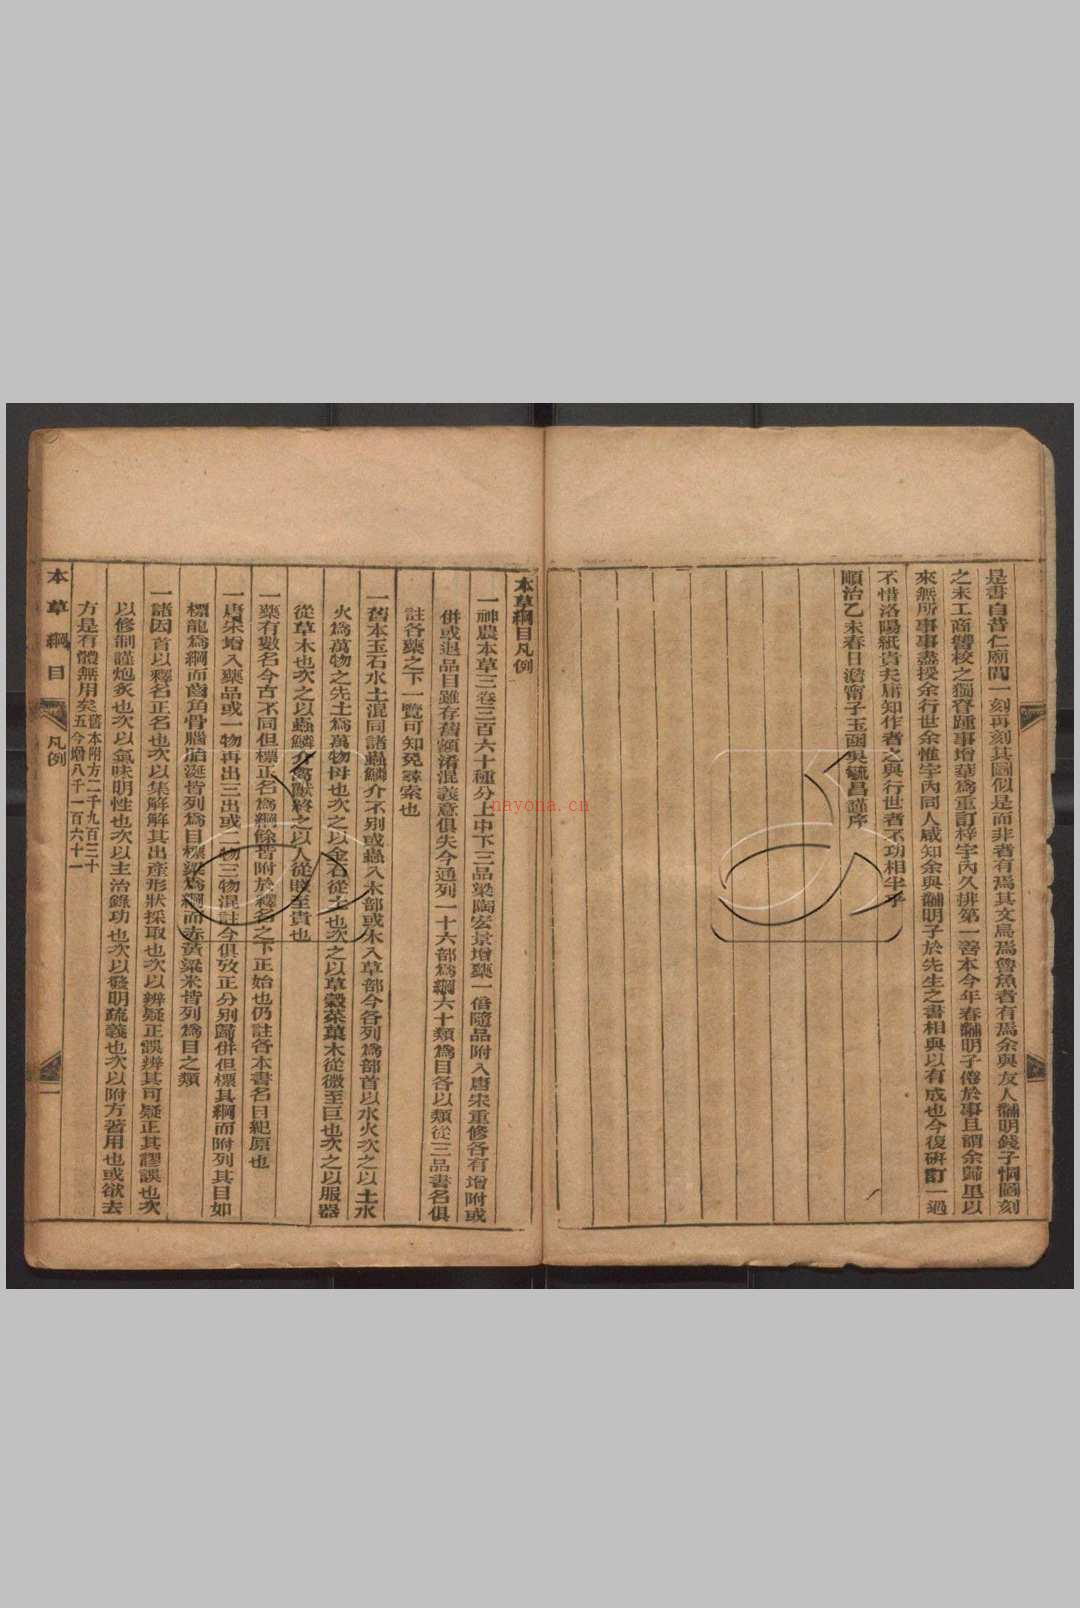 是書自昔仁廟間一刻再刻其圖似是而非者有焉其文烏焉魯魚者有焉余與友人黼明錢子恫圖刻
之未工商讐校之獨眘踵事增華為重訂梓宇內久排第一善本今年春黼明子倦於事且謂余歸里以
來無所事事盡授余行世余惟宇內同人咸知余與黼明子於先生之書相與以有成也今復硏訂一過
不惜洛陽紙貴夫庸知作者之與行世者不功相半乎
順治乙未春日澹甯子玉函吳毓昌謹序
本草綱目凡例
一神農本草三卷三百六十種分上中下三品梁陶宏景增藥一倍隨品附入唐宋重修各有增附或
併或退品目雖存舊額淆混義意俱失今通列一十六部為綱六十類為目各以類從三品書名俱
註各藥之下一覽可知免尋索也
一舊本玉石水土混同諸蟲鱗介不别或蟲入木部或木入草部今各列為部首以水火次之以土水
火為萬物之先土為萬物母也次之以金石從土也次之以草穀菜菓木從微至巨也次之以服器
從草木也次之以蟲鱗介禽獸終之以人從賤至貴也
一藥有數名今古不同但標正名為綱餘皆附於釋名之下正始也仍註各本書名目紀原也
一唐宋增入藥品或一物再出三出或二物三物混註今俱攷正分别歸併但標其綱而附列其目如
標龍為綱而齒角骨腦胎涎皆列為目標粱為綱而赤黃粱米皆列為目之類
一諸因首以釋名正名也次以集解解其出產形狀採取也次以辨疑正誤辨其可疑正其謬誤也次
以修制謹炮炙也次以氣味明性也次以主治錄功也次以發明疏義也次以附方著用也或欲去
方是有體無用矣舊本附方二千九百三十五今增八千一百六十一
本草綱目 凡例 一
nayona.cn